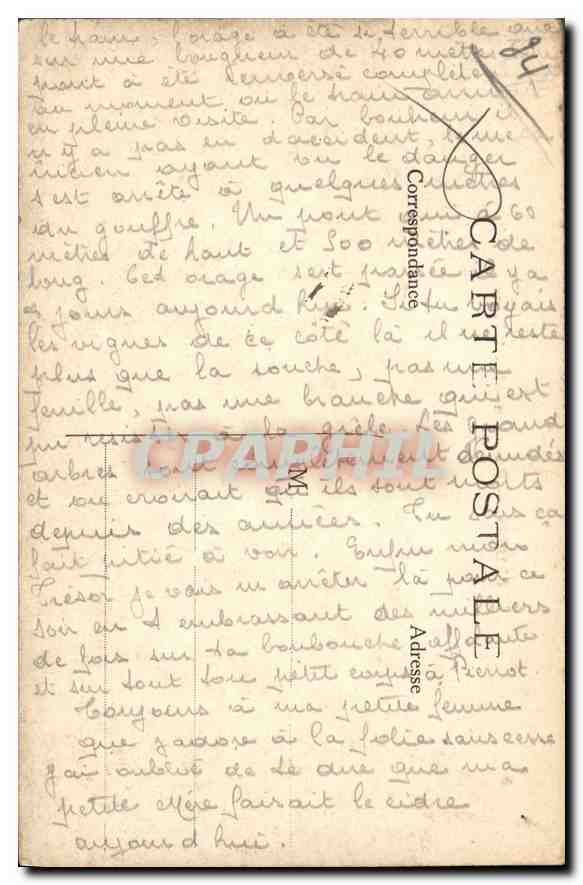 le train, l'orage a été si terrible que
sur une longueur de 40 mètres
pont à été renversé complète
au moment où le train arri
en pleine visite. Par bonheur il
n'y a pas eu d'accident, le mé
nicien ayant vu le danger
s'est arrêté à quelques mètres
du gouffre. Un pont qui à 60
mètres de haut et 500 mètres de
long. Cet orage s'est passée il y a
jours aujourd'hui. Si tu voyais
les vignes de ce côté là il ne reste
plus que la souche, pas une
feuille, pas une branche qui est
pu resister à la grêle. Les grand
arbres sont complètement denudés
et on croirait qu'ils sont morts
depuis des années. Tu sais ça
fait pitié à voir. Enfin mon
Tresor je vais m'arrêter là pour ce
soir en t'embrassant des milliers
de fois sur ta boubouche
et sur tout ton petit corps à Pierrot.
Toujours à ma petite femme
que j'adore à la folie sans cesse
j'ai oublié de te dire que ma
petite Mère faisait le cidre
aujourd'hui.
94
CARTE POSTALE
Correspondance
Adresse
M
CPAPHIL